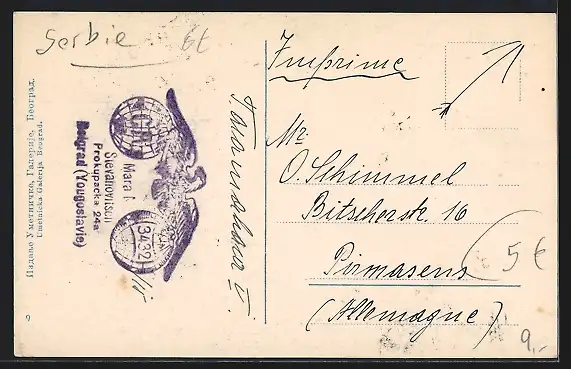 Serbie
6t
Imprimé
Mr
O. Schimmel
Bitscherstr. 16
Pirmasens
(Allemagne)
5€
9,-
Mara
Stevanovitsch
Prokupacka 24a
Beograd (Yougoslavie)
3432
Издање Уметничке Галерије, Београд.
Umetnička Galerija Beograd.
9